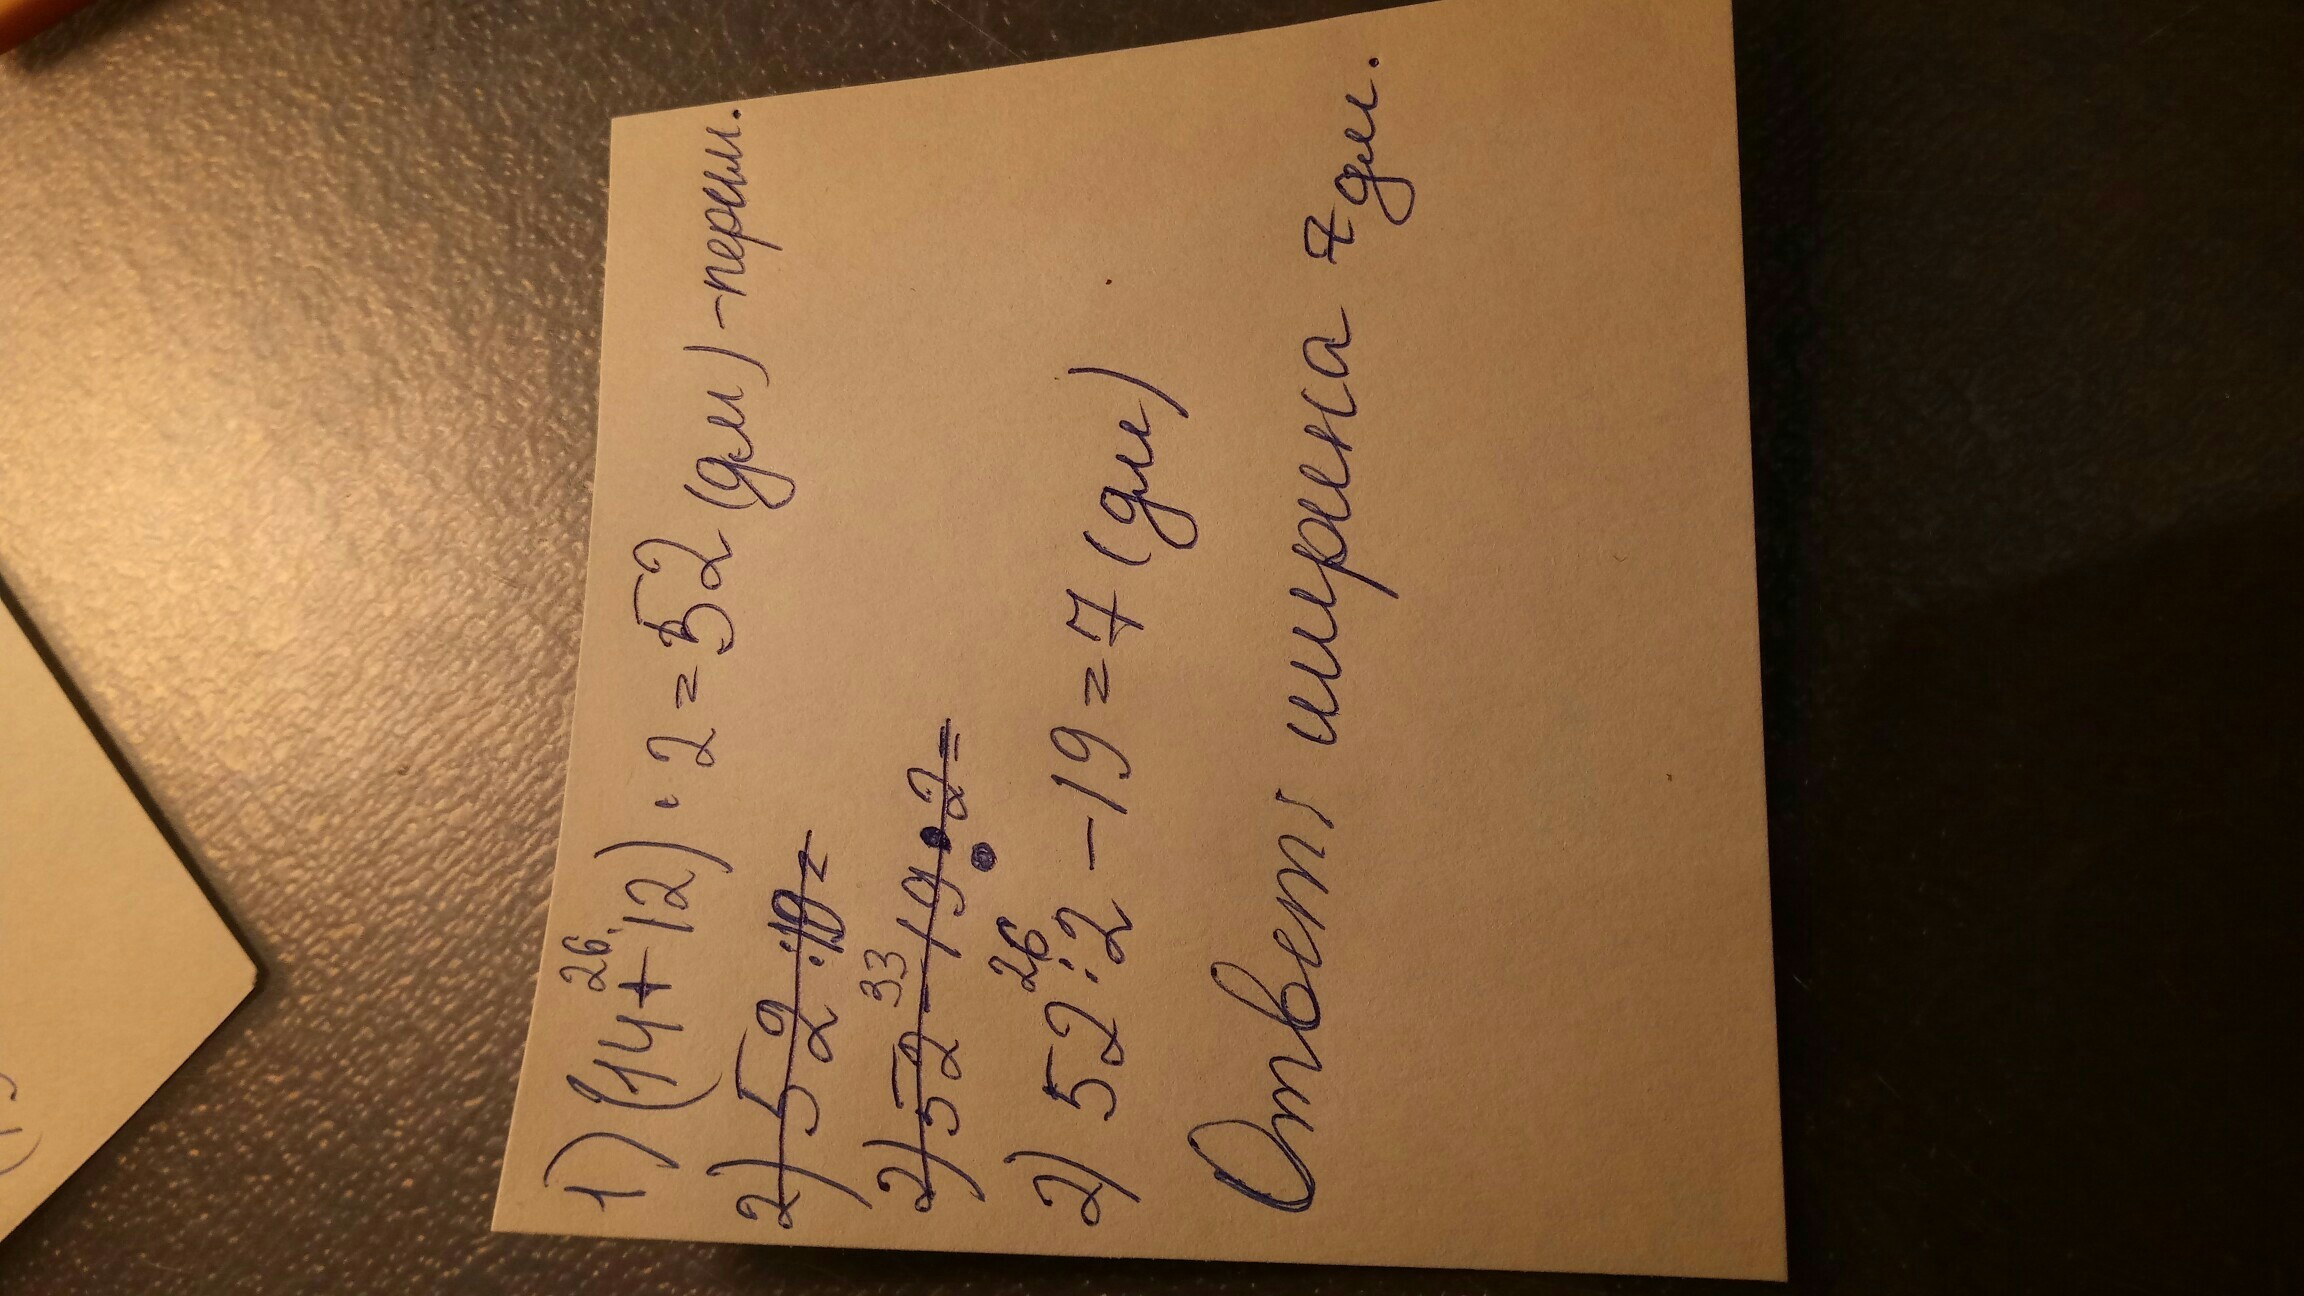 1) (14+12)·2=52 (дм) -перим.
26
2) 52:19=
2) 52-19:2=
33
2) 52:2-19=7 (дм)
26
Ответ: ширина 7 дм.